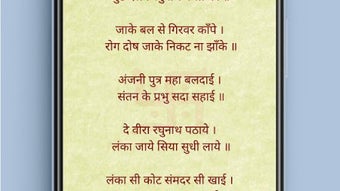 जाके बल से गिरवर काँपे ।
रोग दोष जाके निकट ना झाँके ॥
अंजनी पुत्र महा बलदाई ।
संतन के प्रभु सदा सहाई ॥
दे वीरा रघुनाथ पठाये ।
लंका जाये सिया सुधी लाये ॥
लंका सी कोट संमदर सी खाई ।